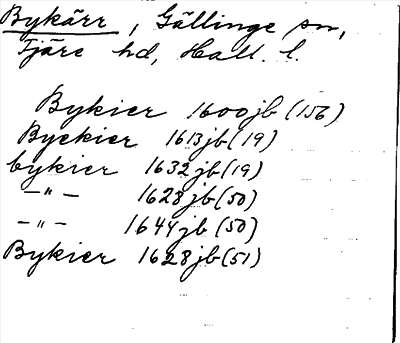 Bykärr, Gällinge sn,
Fjäre hd, Hall. l.
Bykier 1600jb (156)
Byckier 1613jb (19)
bykier 1632jb (19)
—"— 1628jb (50)
—"— 1644jb (50)
Bykier 1628jb (51)